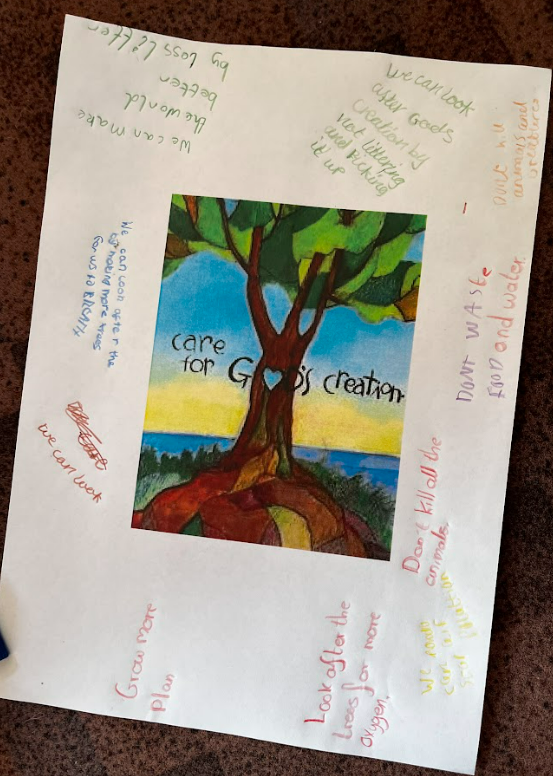 We can make
the world
better
by Loss litter
we can look
after Gods
Creation by
not littering
and Picking
it up
Dont kill
animals and
creatures
We can look after the
by making more trees
for us to BREATH
care
for God's creation.
DONT WASte
FOOD and water.
we can look
Don't kill all the
animals.
We
care
Grow more
Plan
Look after the
trees for more
oxygen.